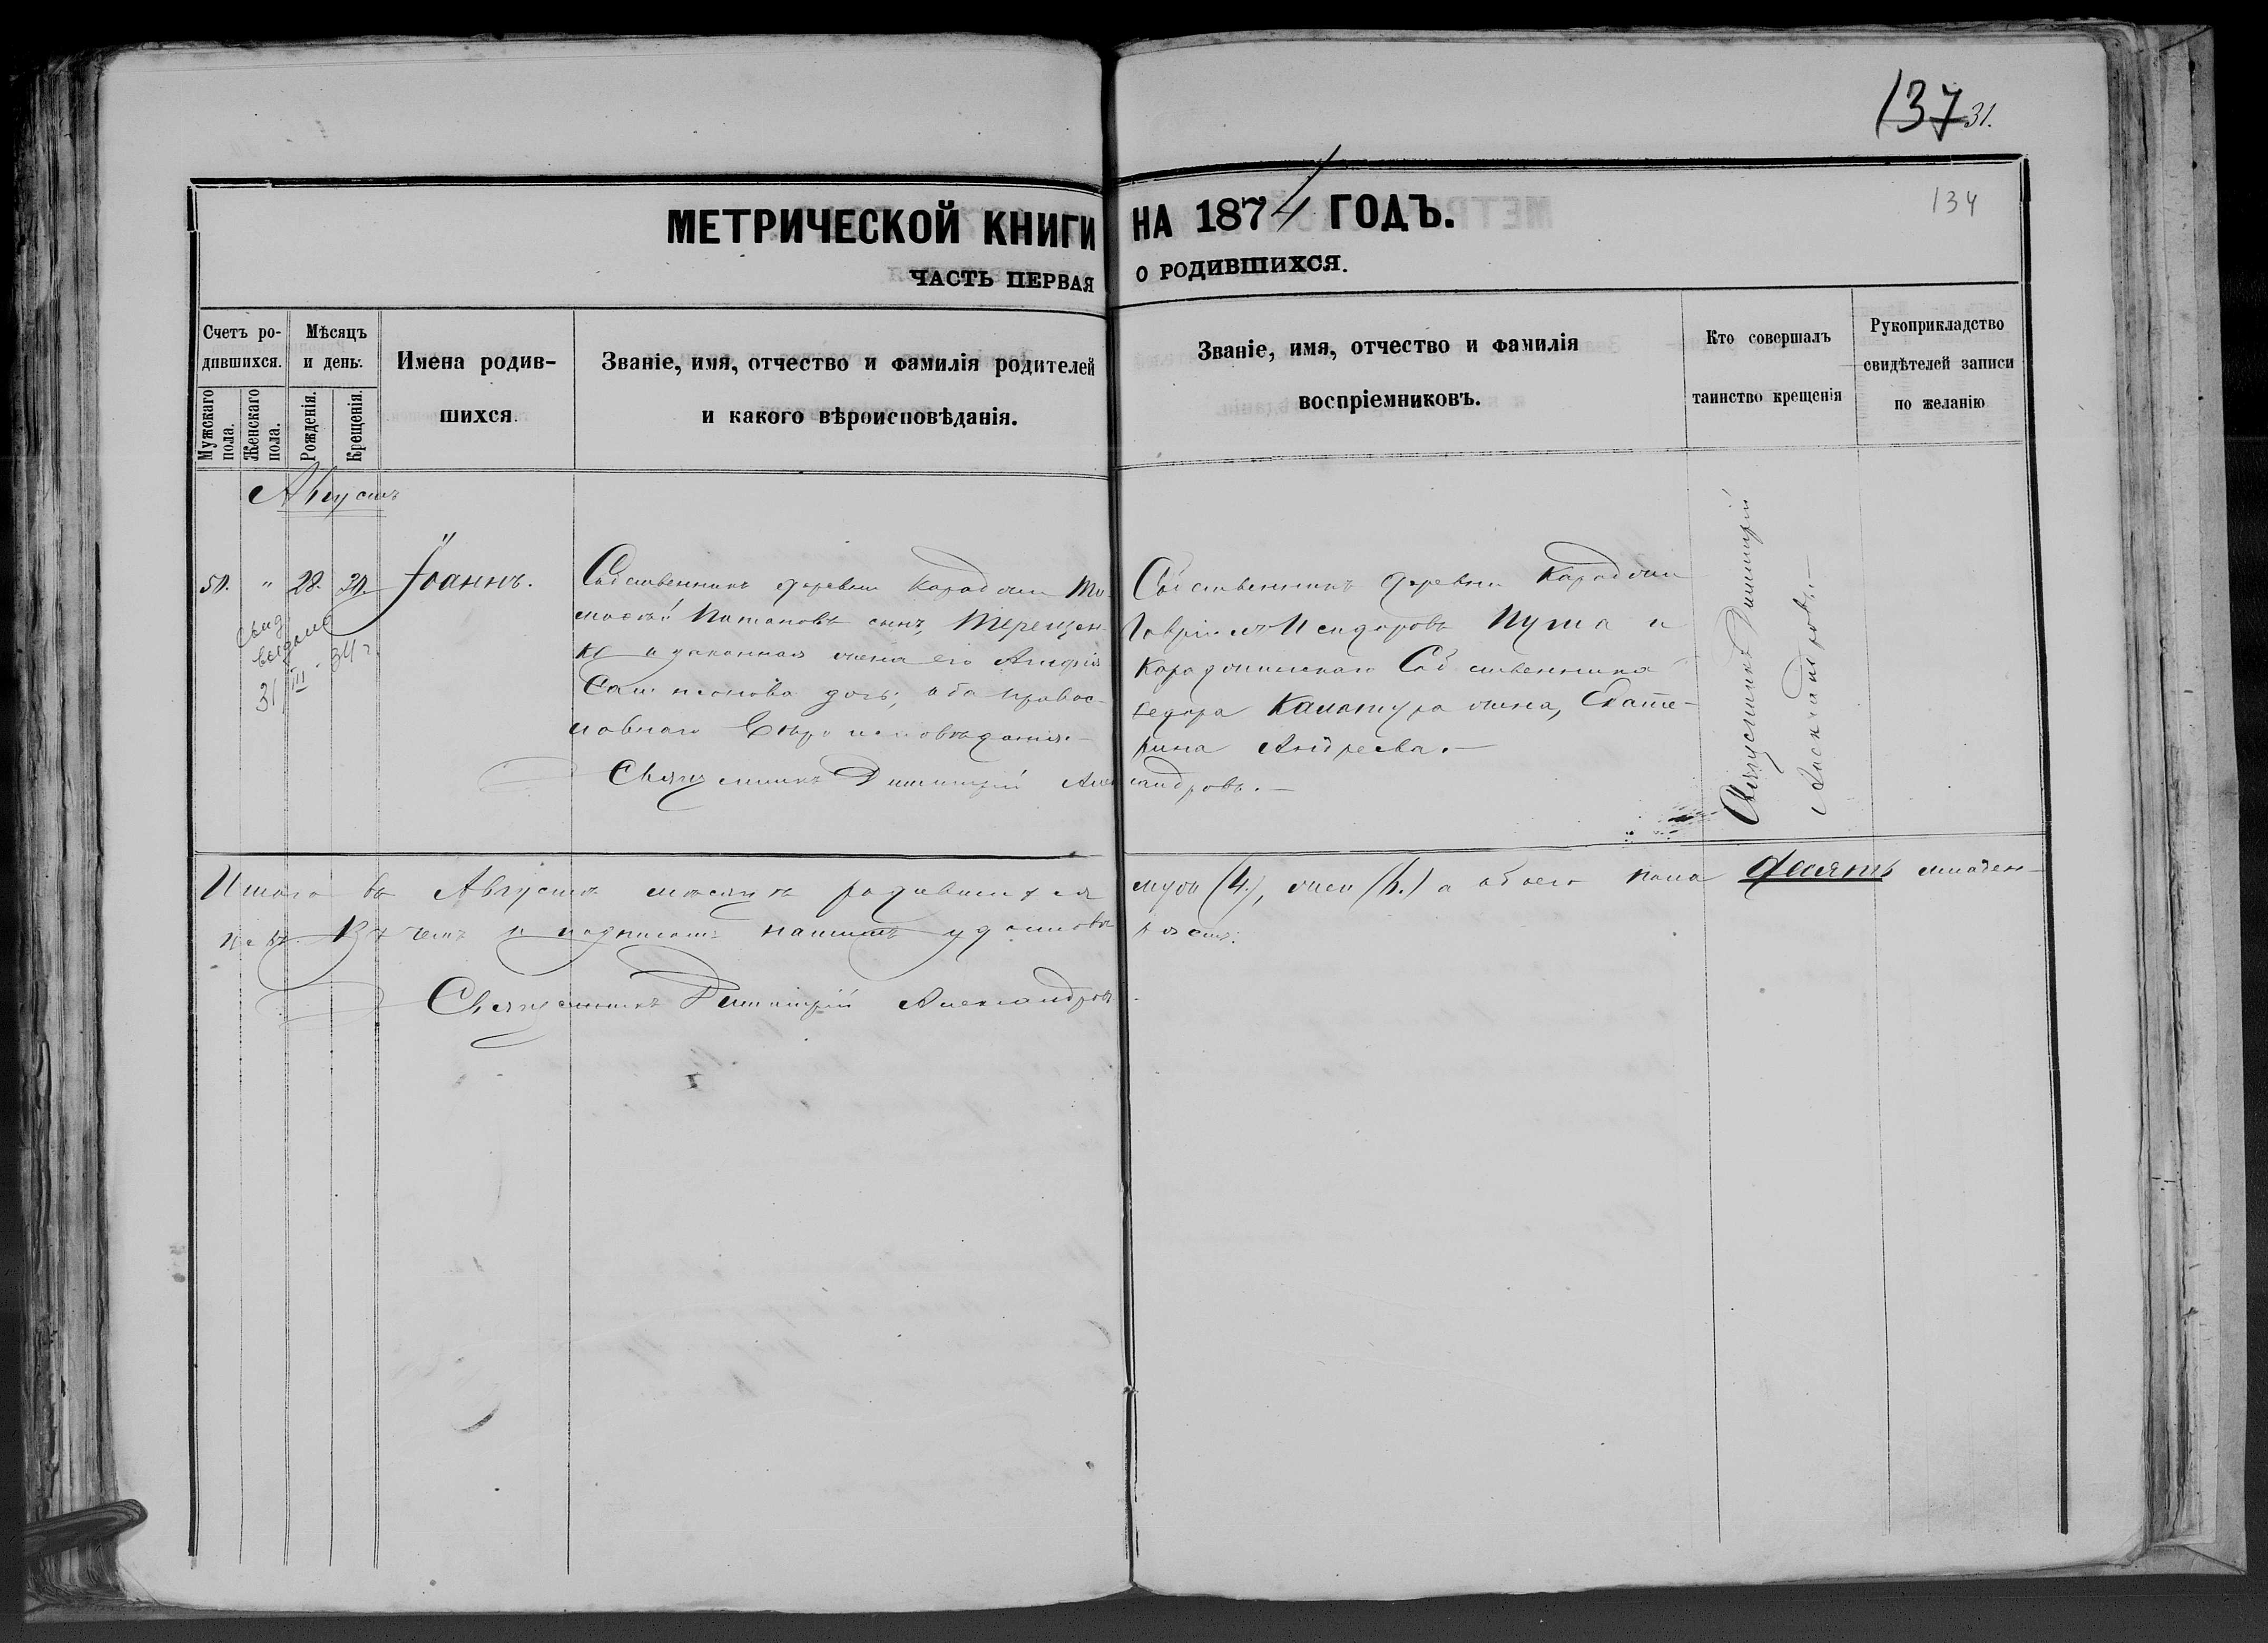 137 31.
134
МЕТРИЧЕСКОЙ КНИГИ НА 1874 ГОДЪ.
ЧАСТЬ ПЕРВАЯ О РОДИВШИХСЯ.
Счетъ ро-
дившихся.
Мужскаго пола.
Женскаго пола.
Мѣсяцъ
и день.
Рожденія.
Крещенія.
Имена родив-
шихся.
Званіе, имя, отчество и фамилія родителей
и какого вѣроисповѣданія.
Званіе, имя, отчество и фамилія
воспріемниковъ.
Кто совершалъ
таинство крещенія
Рукоприкладство
свидѣтелей записи
по желанію
Августъ
" 28.
Іоаннъ.
Свид.
выдано
31/III - 34 г.
Собственникъ деревни Карадочи
Потаповъ сынъ, Терещен-
ко и законная жена его
дочь; оба правос-
лавнаго вѣроисповѣданія.—
Священникъ Димитрій Александровъ.—
Собственникъ деревни Карадочи
Гавріилъ Исидоровъ Пума и
Собственника
Ѳедора жена, Екате-
рина Андреева.—
Священникъ Димитрій
Александровъ.—
Итого въ Августѣ мѣсяцѣ родившихся муж (4.), жен (6.) а обоего пола десять младен-
цевъ. Въ чемъ и подписомъ нашимъ удостовѣряемъ.
Священникъ Димитрій Александровъ